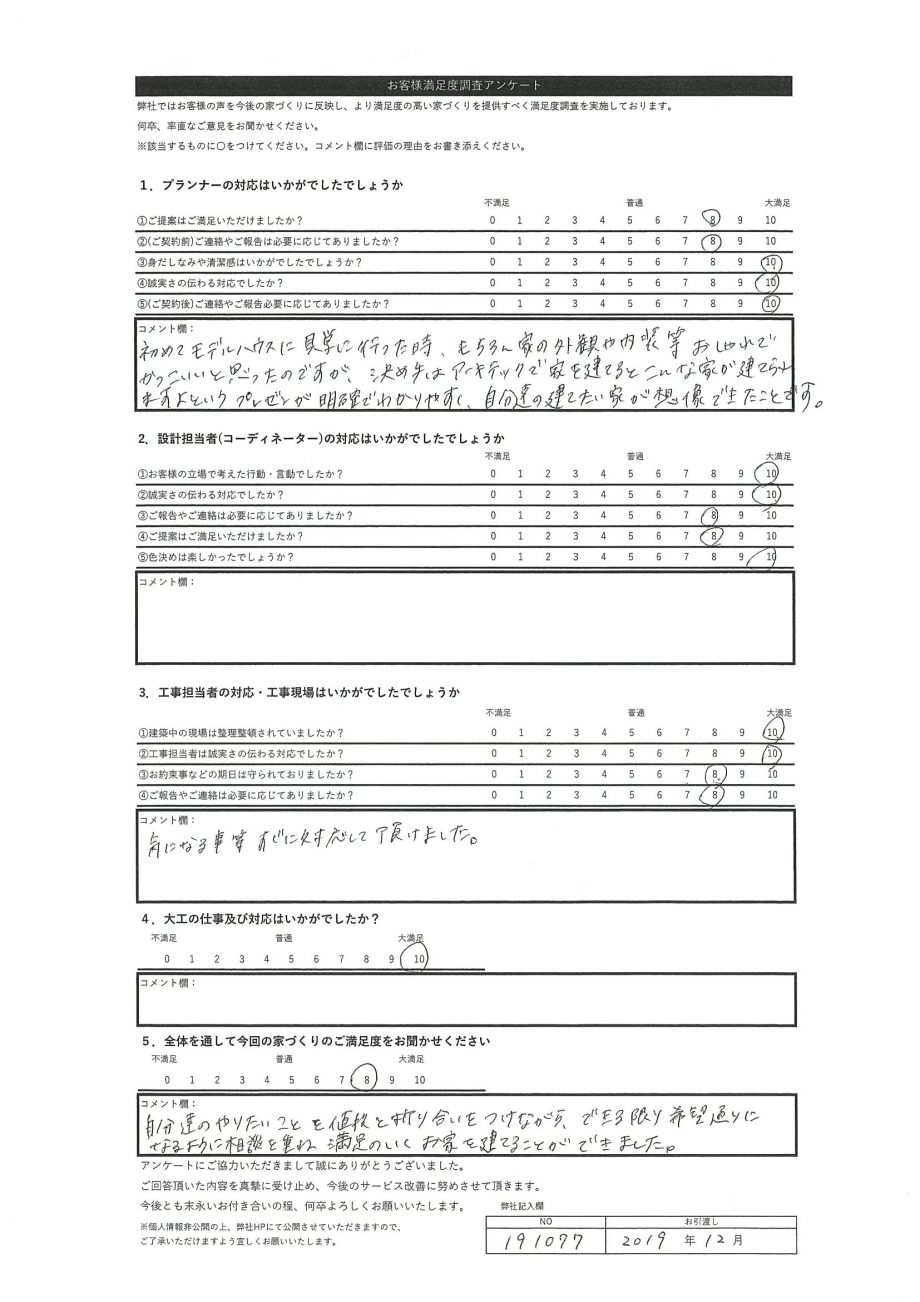 お客様満足度調査アンケート
弊社ではお客様の声を今後の家づくりに反映し、より満足度の高い家づくりを提供すべく満足度調査を実施しております。
何卒、率直なご意見をお聞かせください。
※該当するものに〇をつけてください。コメント欄に評価の理由をお書き添えください。
1．プランナーの対応はいかがでしたでしょうか
不満足 普通 大満足
①ご提案はご満足いただけましたか？ 0 1 2 3 4 5 6 7 8 9 10
②(ご契約前)ご連絡やご報告は必要に応じてありましたか？ 0 1 2 3 4 5 6 7 8 9 10
③身だしなみや清潔感はいかがでしたでしょうか？ 0 1 2 3 4 5 6 7 8 9 10
④誠実さの伝わる対応でしたか？ 0 1 2 3 4 5 6 7 8 9 10
⑤(ご契約後)ご連絡やご報告必要に応じてありましたか？ 0 1 2 3 4 5 6 7 8 9 10
コメント欄：
初めてモデルハウスに見学に行った時、もちろん家の外観や内装等おしゃれで
かっこいいと思ったのですが、決め手はアーキテックで家を建てるとこんな家が建てられ
ますよというプレゼンが明確でわかりやすく、自分達の建てたい家が想像できたことです。
2．設計担当者(コーディネーター)の対応はいかがでしたでしょうか
不満足 普通 大満足
①お客様の立場で考えた行動・言動でしたか？ 0 1 2 3 4 5 6 7 8 9 10
②誠実さの伝わる対応でしたか？ 0 1 2 3 4 5 6 7 8 9 10
③ご報告やご連絡は必要に応じてありましたか？ 0 1 2 3 4 5 6 7 8 9 10
④ご提案はご満足いただけましたか？ 0 1 2 3 4 5 6 7 8 9 10
⑤色決めは楽しかったでしょうか？ 0 1 2 3 4 5 6 7 8 9 10
コメント欄：
3．工事担当者の対応・工事現場はいかがでしたでしょうか
不満足 普通 大満足
①建築中の現場は整理整頓されていましたか？ 0 1 2 3 4 5 6 7 8 9 10
②工事担当者は誠実さの伝わる対応でしたか？ 0 1 2 3 4 5 6 7 8 9 10
③お約束事などの期日は守られておりましたか？ 0 1 2 3 4 5 6 7 8 9 10
④ご報告やご連絡は必要に応じてありましたか？ 0 1 2 3 4 5 6 7 8 9 10
コメント欄：
気になる事等すぐに対応して頂けました。
4．大工の仕事及び対応はいかがでしたか？
不満足 普通 大満足
0 1 2 3 4 5 6 7 8 9 10
コメント欄：
5．全体を通して今回の家づくりのご満足度をお聞かせください
不満足 普通 大満足
0 1 2 3 4 5 6 7 8 9 10
コメント欄：
自分達のやりたいことを値段と折り合いをつけながら、できる限り希望通りに
なるように相談を重ね満足のいくお家を建てることができました。
アンケートにご協力いただきまして誠にありがとうございました。
ご回答頂いた内容を真摯に受け止め、今後のサービス改善に努めさせて頂きます。
今後とも末永いお付き合いの程、何卒よろしくお願いいたします。
※個人情報非公開の上、弊社HPにて公開させていただきますので、
ご了承いただけますよう宜しくお願いいたします。
弊社記入欄
NO お引渡し
191077 2019 年 12 月